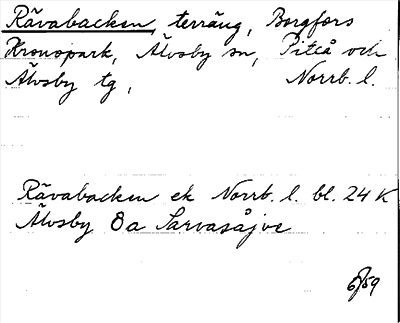 Rävabacken, terräng, Borgfors
Kronopark, Älvsby sn, Piteå och
Älvsby tg, Norrb. l.
Rävabacken ek Norrb. l. bl. 24 K
Älvsby 8a Sarvasåjve
6/59